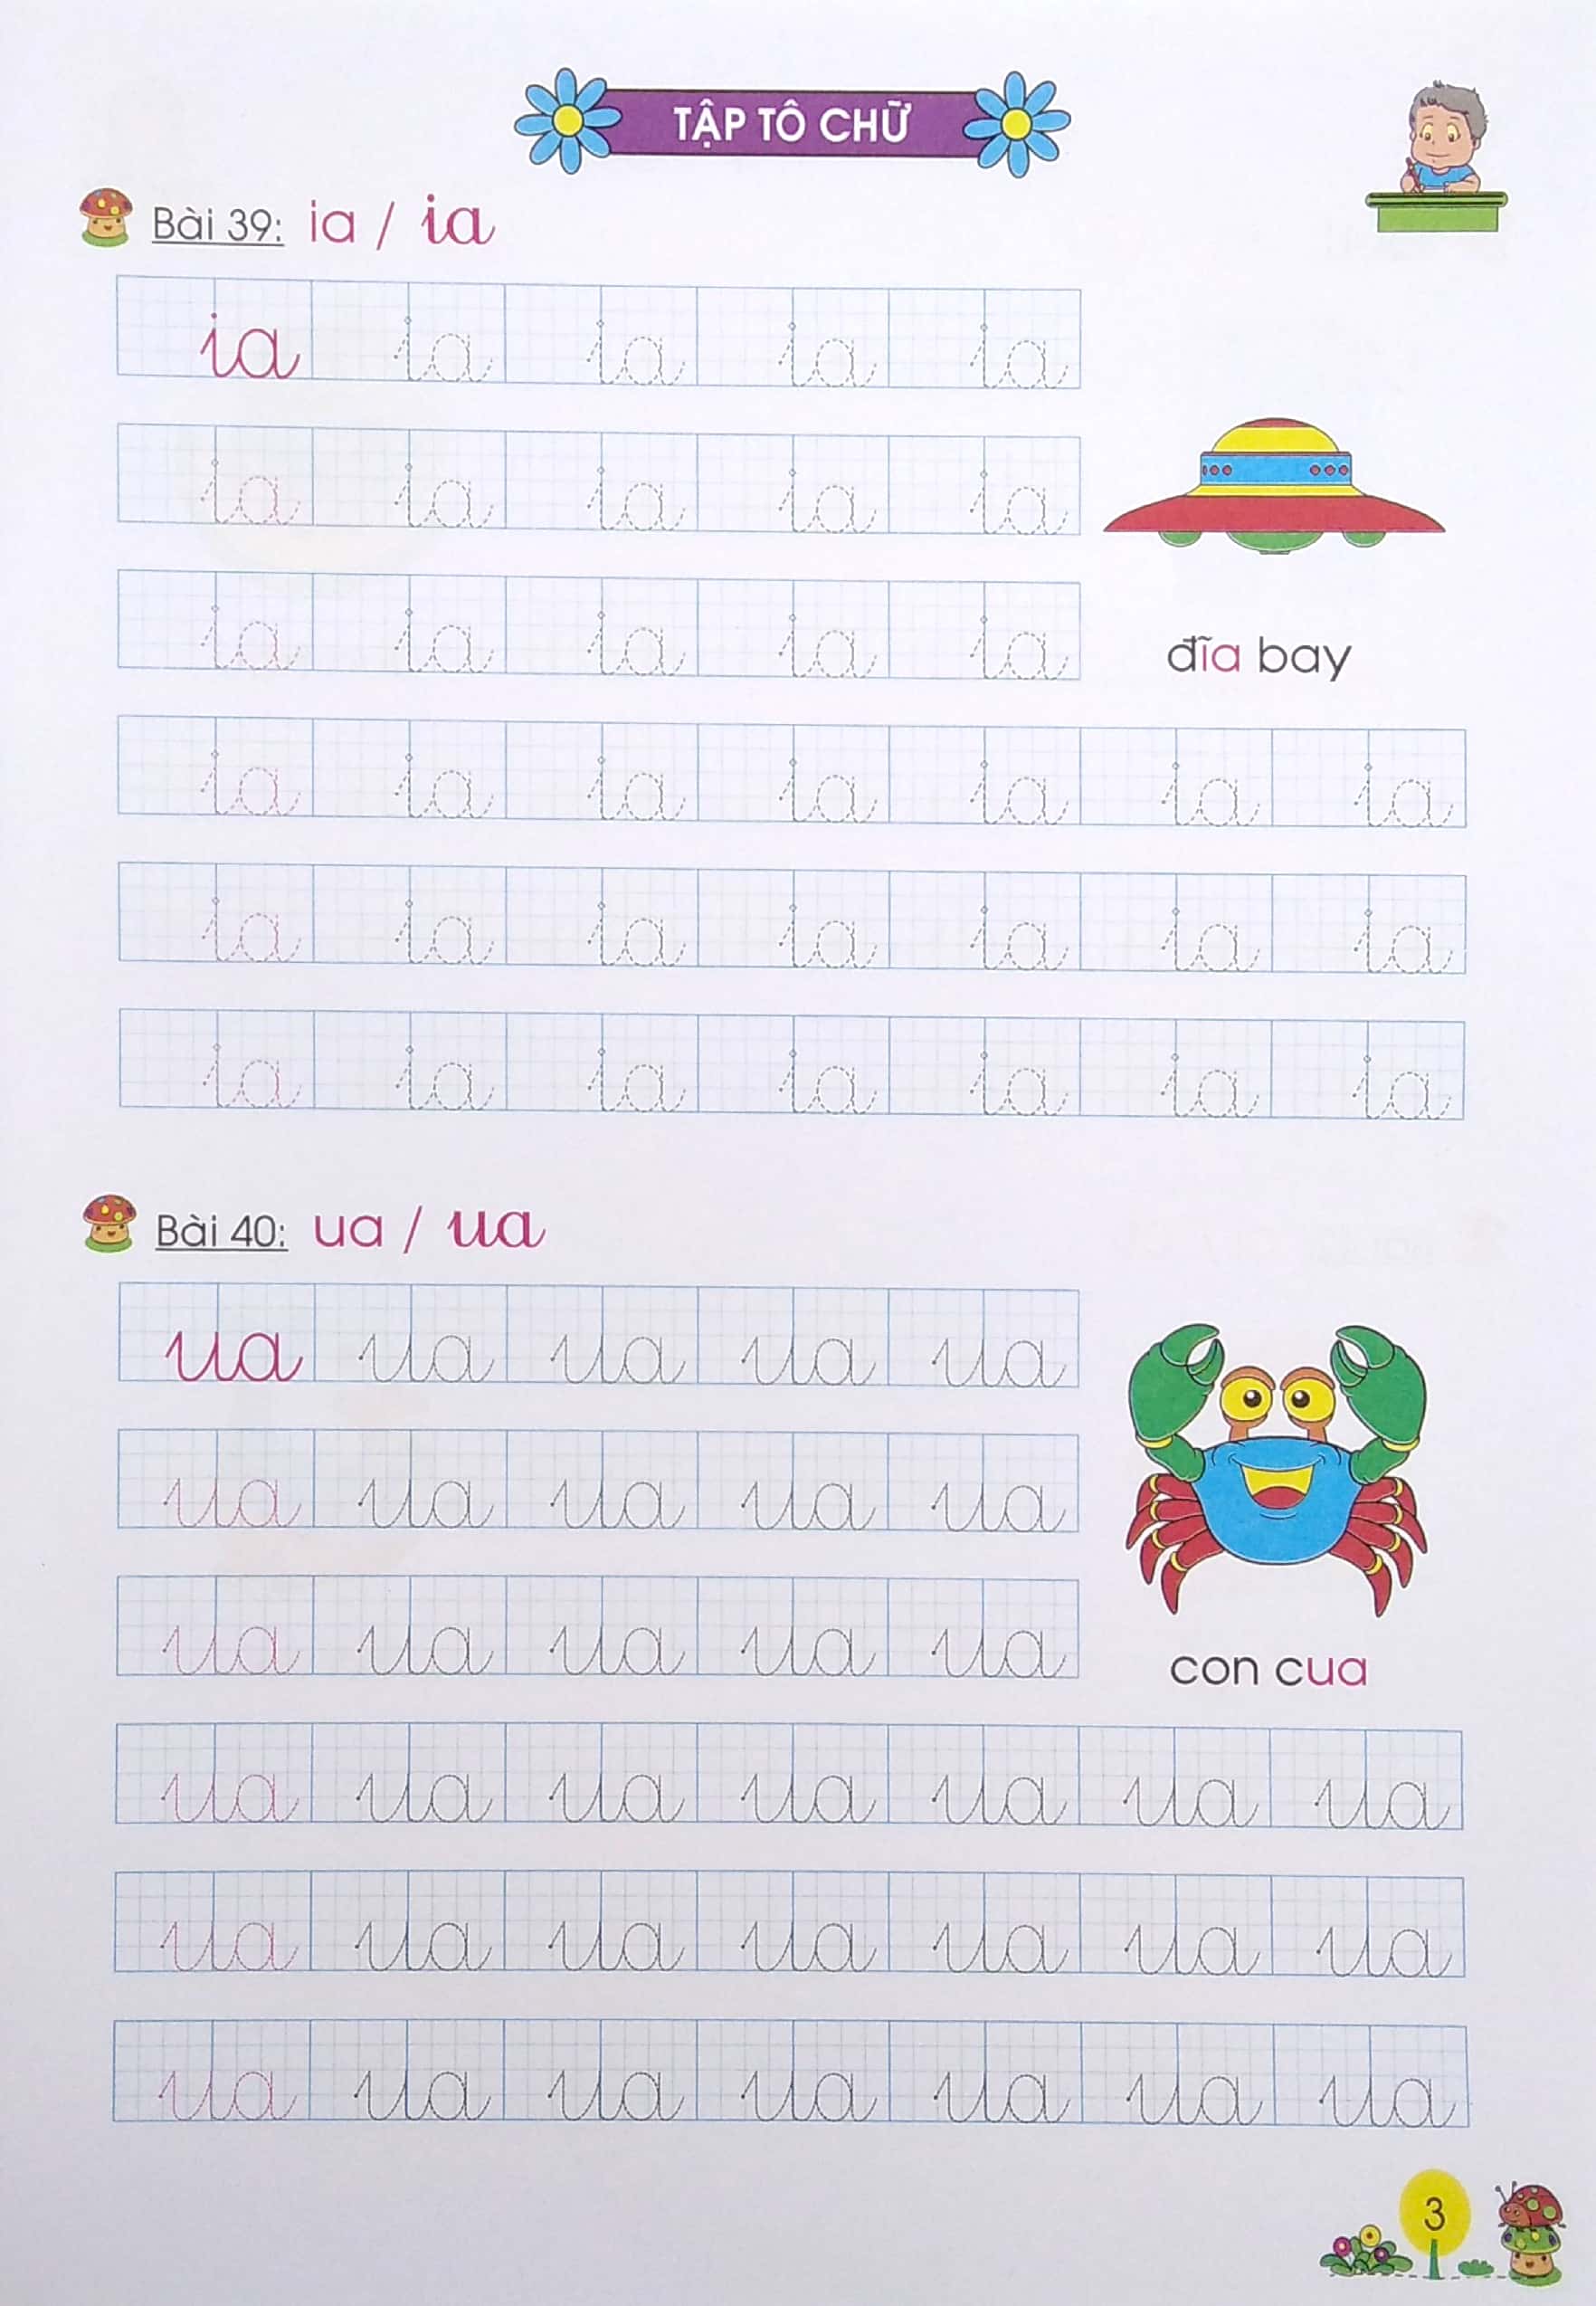 TẬP TÔ CHỮ
Bài 39: ia / ia
ia ia ia ia ia
ia ia ia ia ia
ia ia ia ia ia
đĩa bay
ia ia ia ia ia ia ia
ia ia ia ia ia ia ia
ia ia ia ia ia ia ia
Bài 40: ua / ua
ua ua ua ua ua
ua ua ua ua ua
ua ua ua ua ua
con cua
ua ua ua ua ua ua ua
ua ua ua ua ua ua ua
ua ua ua ua ua ua ua
3